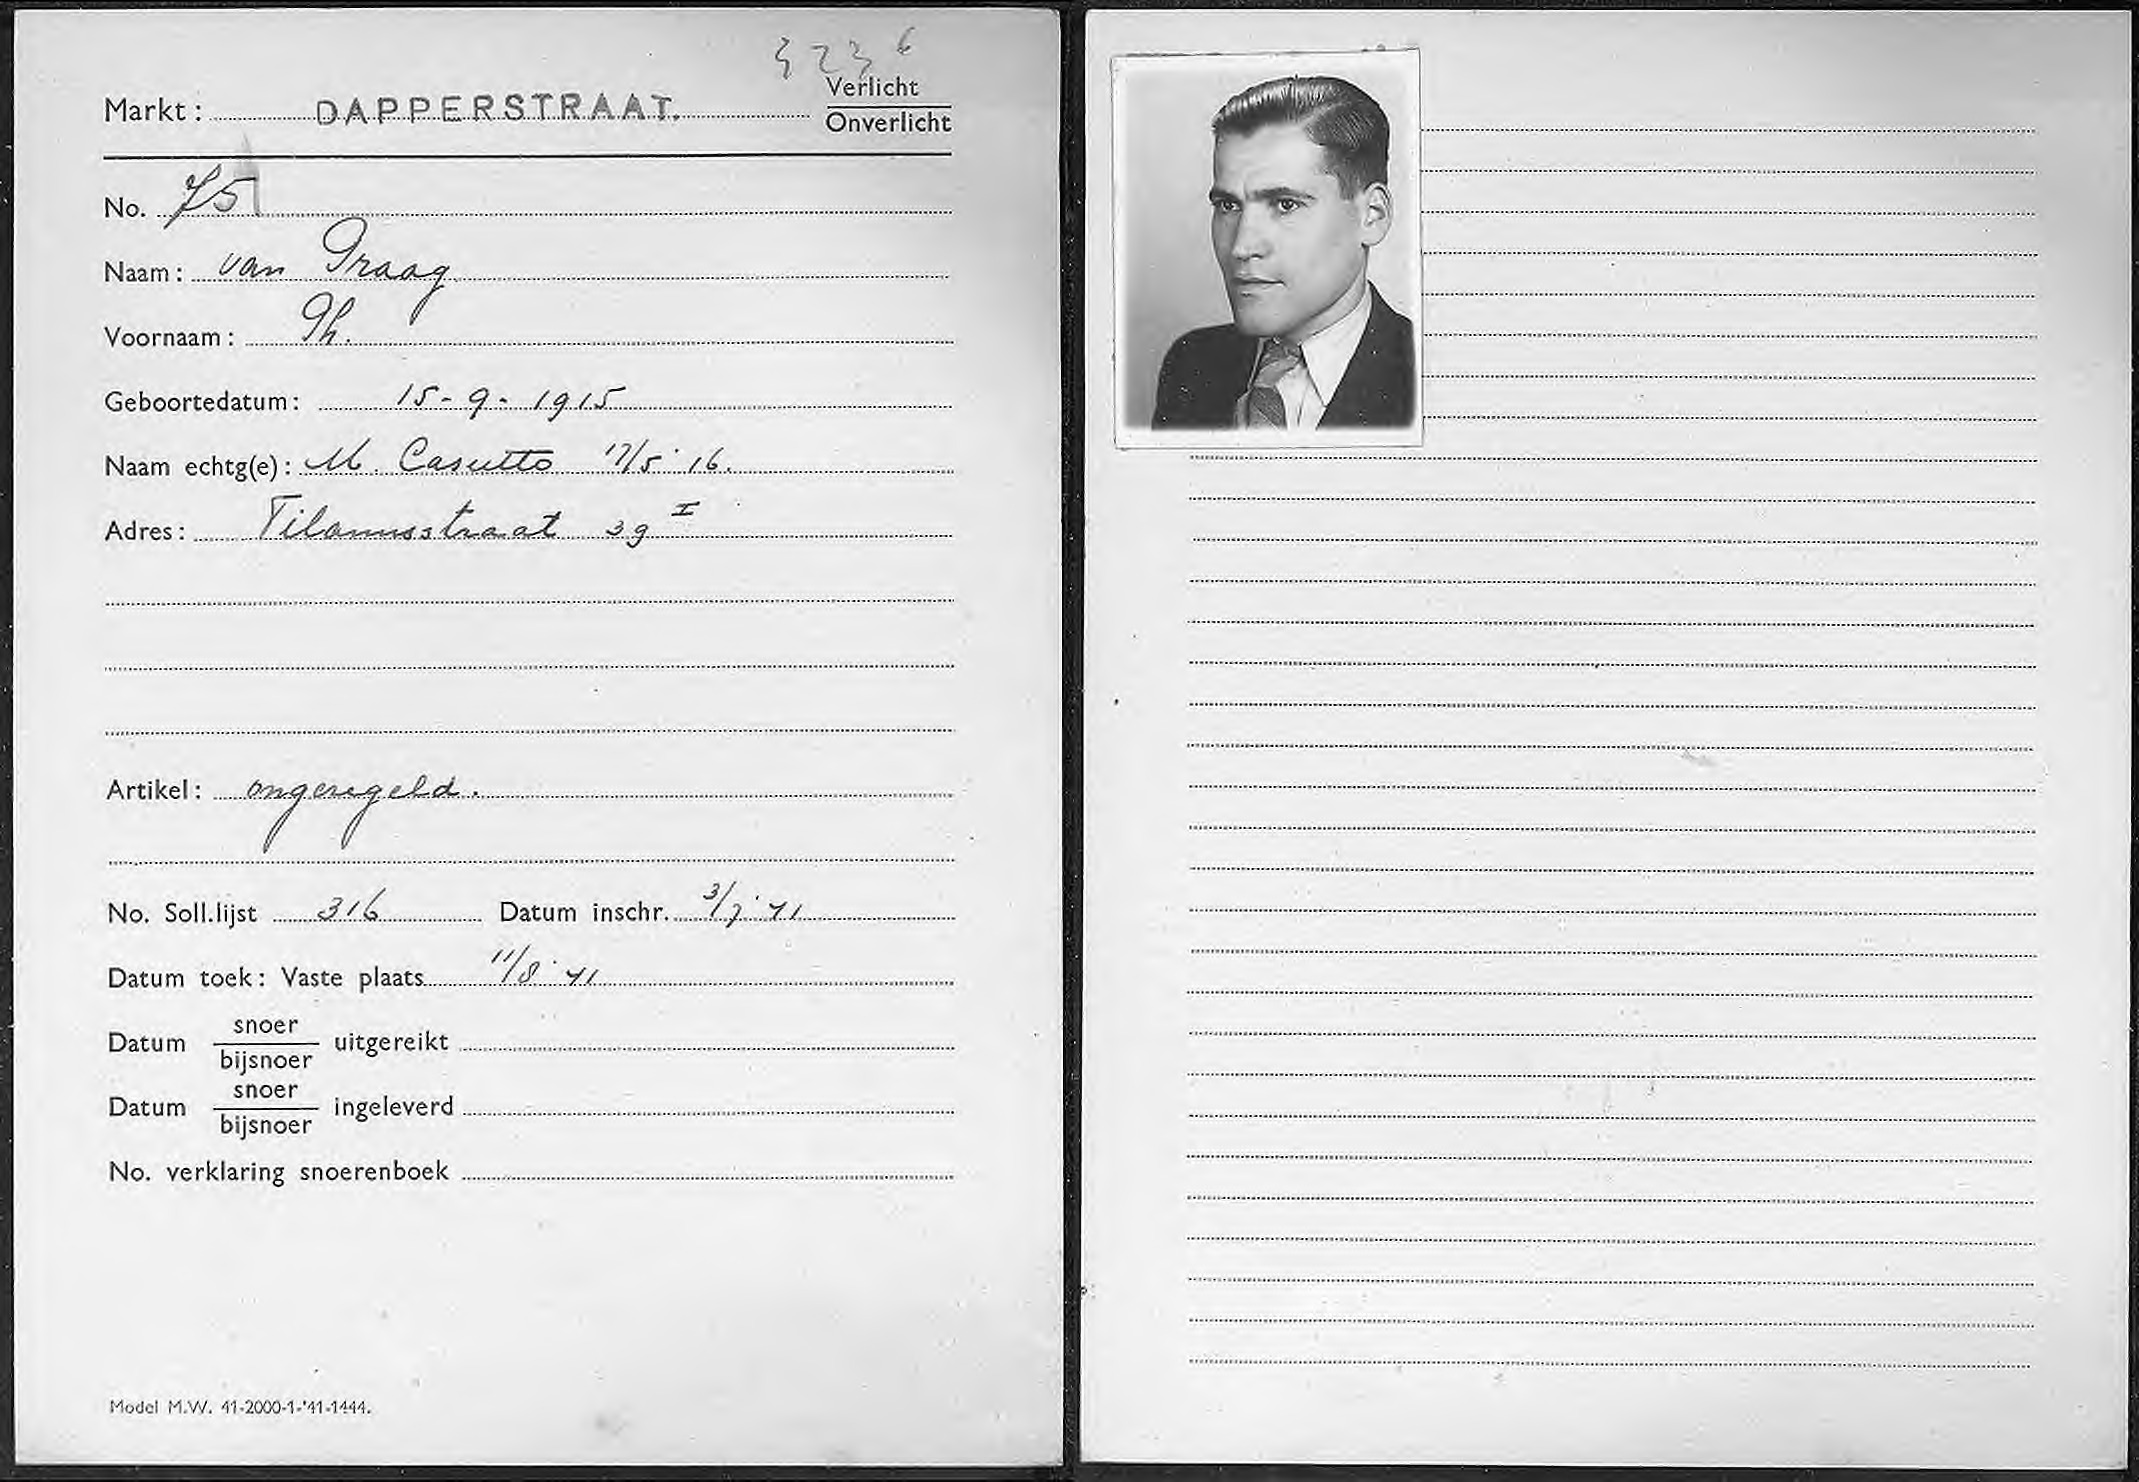 3236
Verlicht
Markt: DAPPERSTRAAT.
Onverlicht
No. 75
Naam: van Praag
Voornaam: Ph.
Geboortedatum: 15-9-1915
Naam echtg(e): M. Casutto 17/5 '16.
Adres: Tilanusstraat 39 I
Artikel: ongeregeld.
No. Soll.lijst 316 Datum inschr. 3/7 '41
Datum toek: Vaste plaats 11/8 '41
snoer
Datum uitgereikt
bijsnoer
snoer
Datum ingeleverd
bijsnoer
No. verklaring snoerenboek
Model M.W. 41-2000-1-'41-1444.